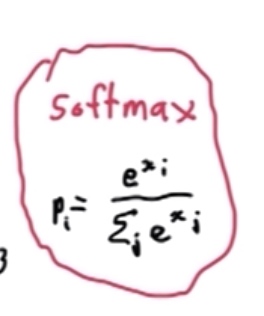 softmax
p_i = e^{x_i} / Σ_j e^{x_j}